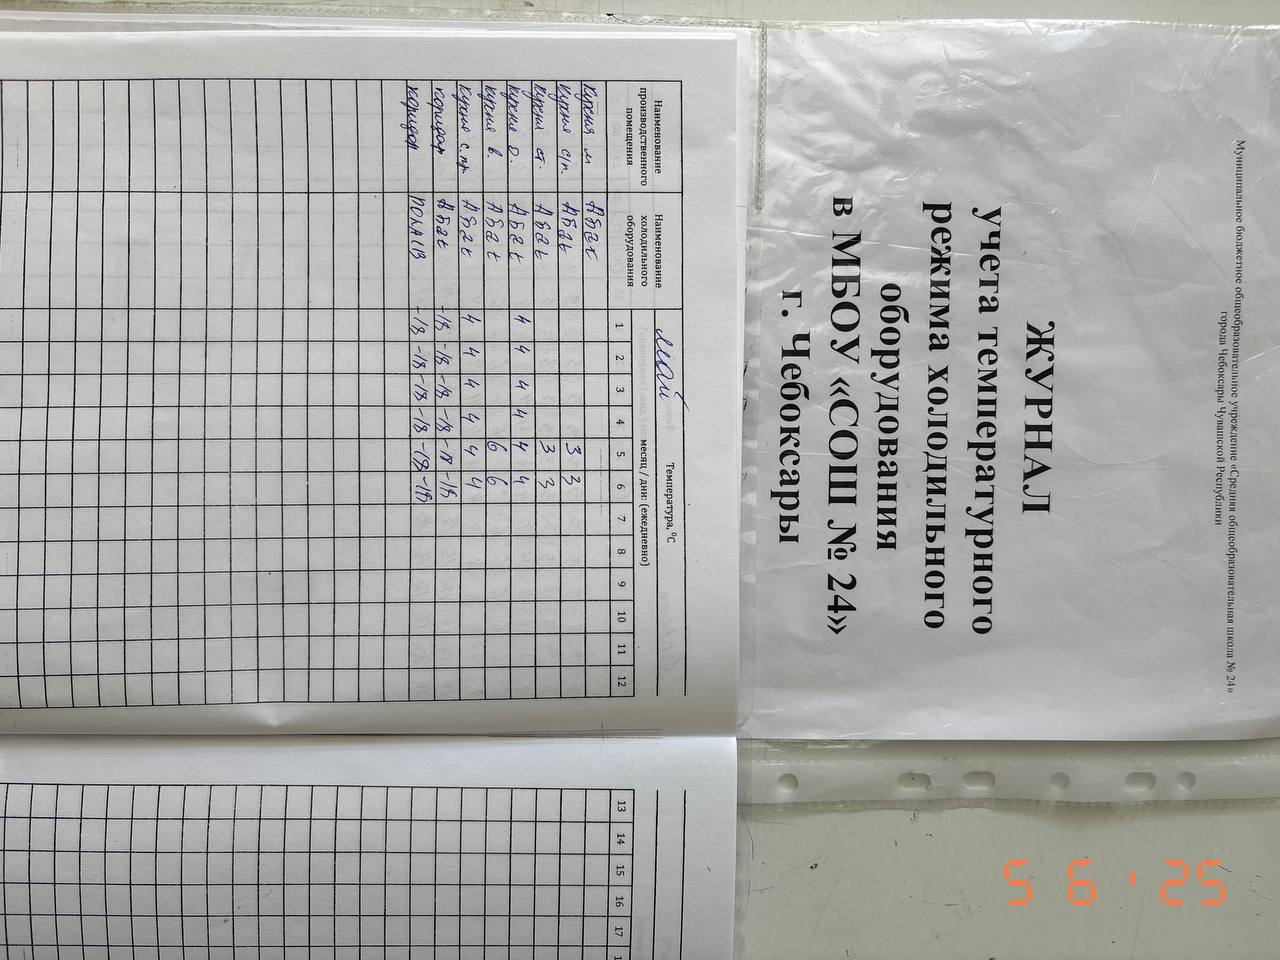 Муниципальное бюджетное общеобразовательное учреждение «Средняя общеобразовательная школа № 24»
города Чебоксары Чувашской Республики
ЖУРНАЛ
учета температурного
режима холодильного
оборудования
в МБОУ «СОШ № 24»
г. Чебоксары
май
Температура, °С
месяц / дни: (ежедневно)
Наименование производственного помещения Наименование холодильного оборудования 1 2 3 4 5 6 7 8 9 10 11 12
кухня м Абат
кухня с/п. Абат 3 3
кухня ст. Абат 3 3
кухня о. Абат 4 4 4 4 4 4
кухня в. Абат 6 6
кухня с.пр Абат 4 4 4 4 4 4
коридор Абат -18 -18 -18 -18 -18 -18
коридор -18 -18 -18 -18 -18 -18
13 14 15 16 17
5 6 ' 25